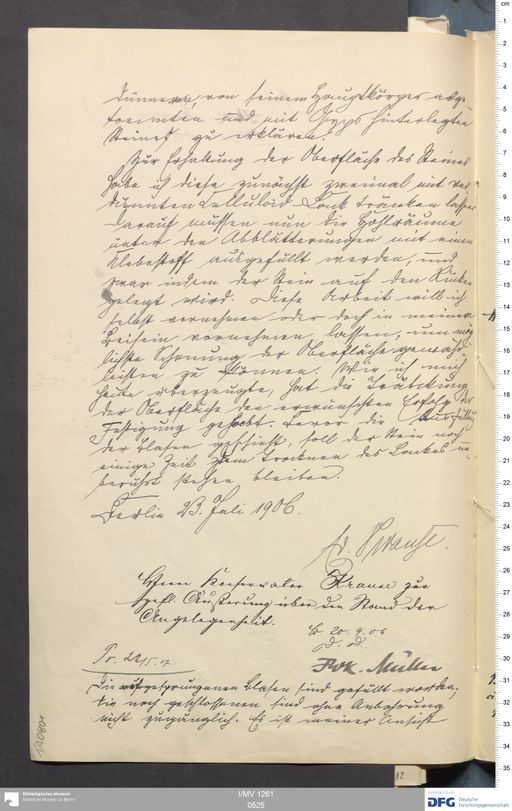 dünneren, von seinem Hauptkörper abge-
trennten und mit Gyps hinterlegten
Steines zu erklären.
Zur Erhaltung der Oberfläche des Steines
habe ich diese zunächst zweimal mit ver-
dünntem Celluloid-Lack tränken lassen
darauf müssen nun die Hohlräume
unter den Abblätterungen mit einem
Klebestoff ausgefüllt werden, und
zwar indem der Stein auf den Rücken
gelegt wird. Diese Arbeit will ich
selbst vornehmen oder doch in meinem
Beisein vornehmen lassen, um mög-
lichste Schonung der Oberfläche gewähr-
leisten zu können. Wie ich mich
heute überzeugte, hat die Tränkung
der Oberfläche den erwünschten Erfolg der
Festigung gehabt. Bevor die Ausfüllung
der Blasen geschieht, soll der Stein noch
einige Zeit zum Trocknen des Lackes un-
berührt stehen bleiben.
Berlin 23. Juli 1906.
Krause.
Herrn Konservator Krause zur
gefl. Äußerung über den Stand der
Angelegenheit.
B 20.9.06
Müller
Die aufgesprungenen Blasen sind gefüllt worden,
die noch geschlossenen sind ohne Anbohrung
nicht zugänglich. Es ist meiner Ansicht
Ethnologisches Museum
Staatliche Museen zu Berlin
I/MV 1261
0525
Gefördert durch
DFG Deutsche
Forschungsgemeinschaft